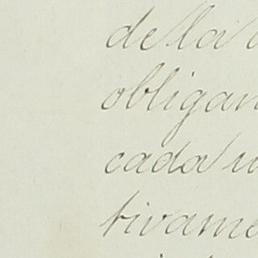 de la
obligan
cada u
tivame